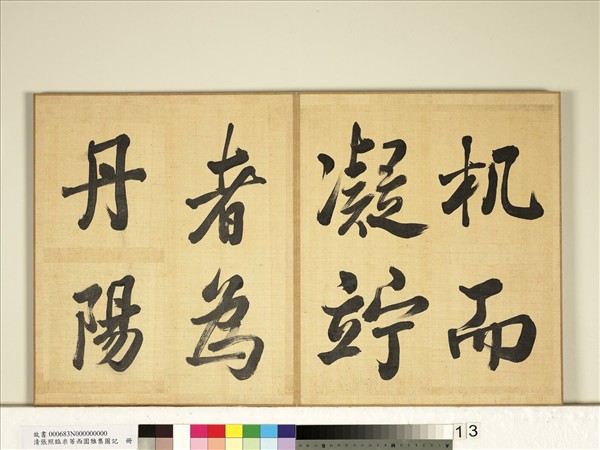 机而
凝竚
者為
丹陽
故書 000683N00000000
清張照臨米芾西園雅集圖記 冊
13